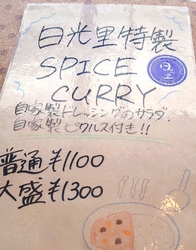 日光里特製
SPICE
CURRY
自家製ドレッシングのサラダ.
自家製ピクルス付き!!
普通¥1100
大盛¥1300